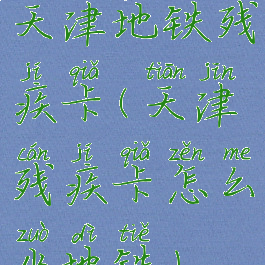 天津地铁残
jí qiǎ tiān jīn
疾卡(天津
cán jí qiǎ zěn me
残疾卡怎么
zuò dì tiě
坐地铁)